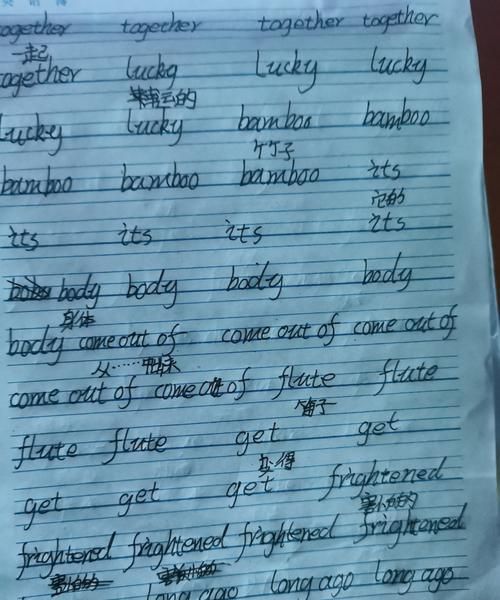 together together together together
一起
together lucky Lucky lucky
幸运的
Lucky lucky bamboo bamboo
竹子
bamboo bamboo bamboo its
它的
its its its its
body body body body
身体
body come out of come out of come out of
从……出来
come out of come out of flute flute
笛子
flute flute get get
变得
get get get frightened
害怕的
frightened frightened frightened frightened
long ago long ago long ago